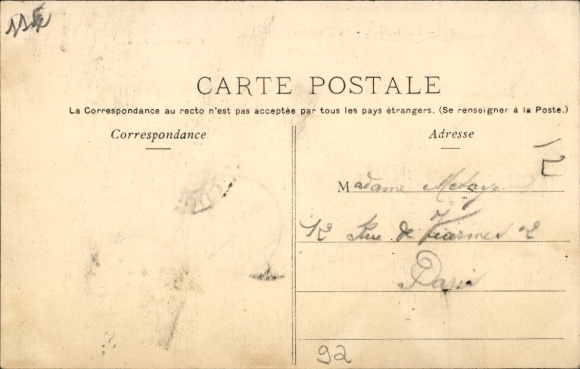 CARTE POSTALE
La Correspondance au recto n'est pas acceptée par tous les pays étrangers. (Se renseigner à la Poste.)
Correspondance
Adresse
Madame
12 Rue de Viarmes
Paris
92